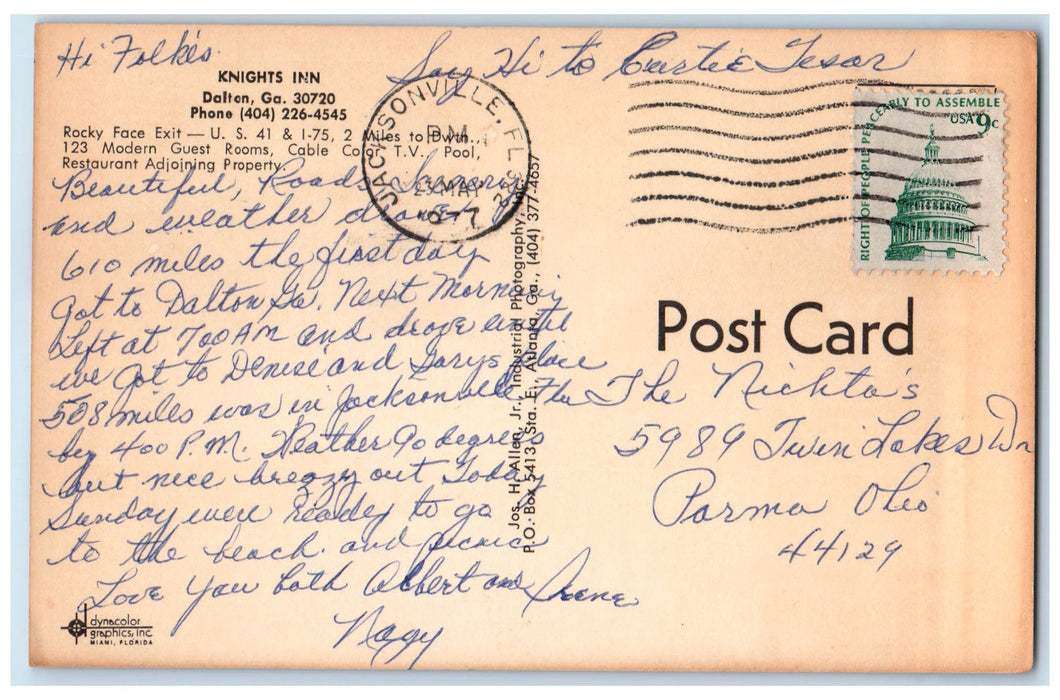 Hi Folks
Say Hi to Curtie Tesar
KNIGHTS INN
Dalton, Ga. 30720
Phone (404) 226-4545
Rocky Face Exit — U. S. 41 & I-75, 2 Miles to Dwtn.
123 Modern Guest Rooms, Cable Color T.V. Pool,
Restaurant Adjoining Property.
Beautiful, Roads
and weather drove
610 miles the first day
got to Dalton Ga. Next Morning
Left at 700 AM and drove until
we got to Denise and Garys place
508 miles was in Jacksonville Fla
by 400 P.M. Weather 90 degrees
but nice breezy out Today
Sunday were ready to go
to the beach and picnic.
Love you both Albert and Irene
Nagy
JACKSONVILLE, FL
PM
MAY
RIGHT OF PEOPLE PEACEABLY TO ASSEMBLE
USA 9c
Post Card
The Nichta's
5989 Twin Lakes Dr
Parma Ohio
44129
Jos. H. Allen, Jr., Industrial Photography, Inc.
P.O. Box 5413, Sta. E., Atlanta, Ga., (404) 377-4657
dynacolor
graphics, inc.
MIAMI, FLORIDA